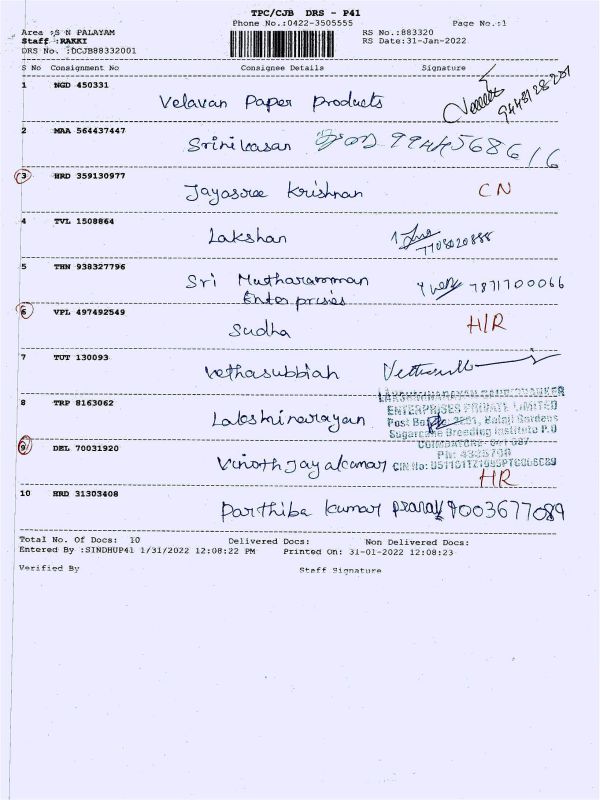 TPC/CJB DRS - P41
Phone No.:0422-3505555 Page No.:1
Area :S N PALAYAM RS No.:883320
Staff :RAKKI RS Date:31-Jan-2022
DRS No. :DCJB88332001
S No Consignment No Consignee Details Signature
1 NGD 450331
Velavan Paper Products
2 MAA 564437447
Srinivasan 9944568616
3 HRD 359130977
Jayasree Krishnan CN
4 TVL 1508864
Lakshan 7708020888
5 THN 938327796
Sri Mutharamman 7871700066
Enterprises
6 VPL 497492549
Sudha H/R
7 TUT 130093
Vethasubbiah
8 TRP 8163062
Lakshminarayan
ENTERPRISES PRIVATE LIMITED
Sugarcane Breeding Institute P.O
9 DEL 70031920
Vinoth Jayakumar HR
10 HRD 31303408
Parthiba Kumar 9003677089
Total No. Of Docs: 10 Delivered Docs: Non Delivered Docs:
Entered By :SINDHUP41 1/31/2022 12:08:22 PM Printed On: 31-01-2022 12:08:23
Verified By Staff Signature